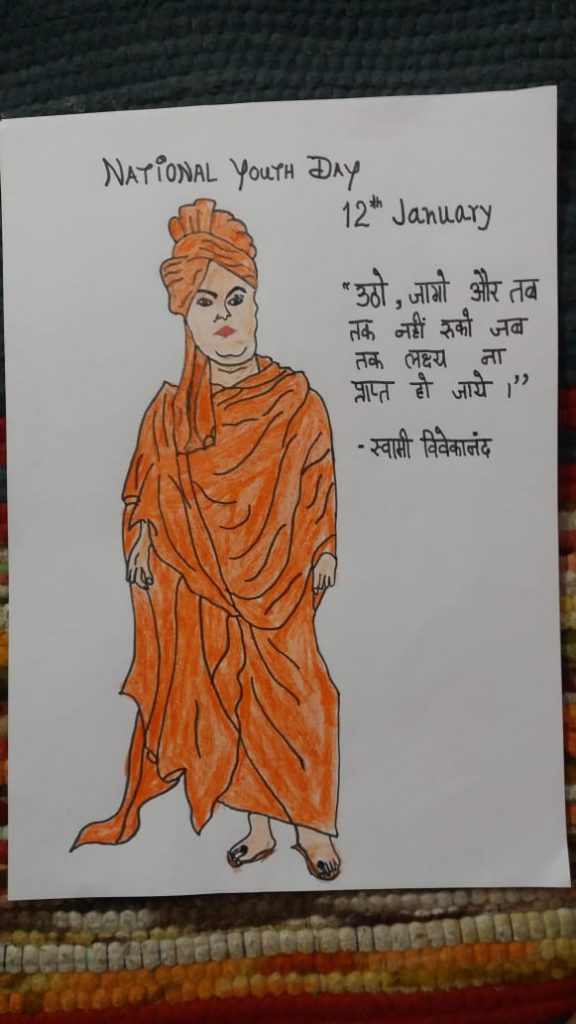 National Youth Day
12th January
"उठो, जागो और तब
तक नहीं रुको जब
तक लक्ष्य ना
प्राप्त हो जाये ।"
- स्वामी विवेकानंद